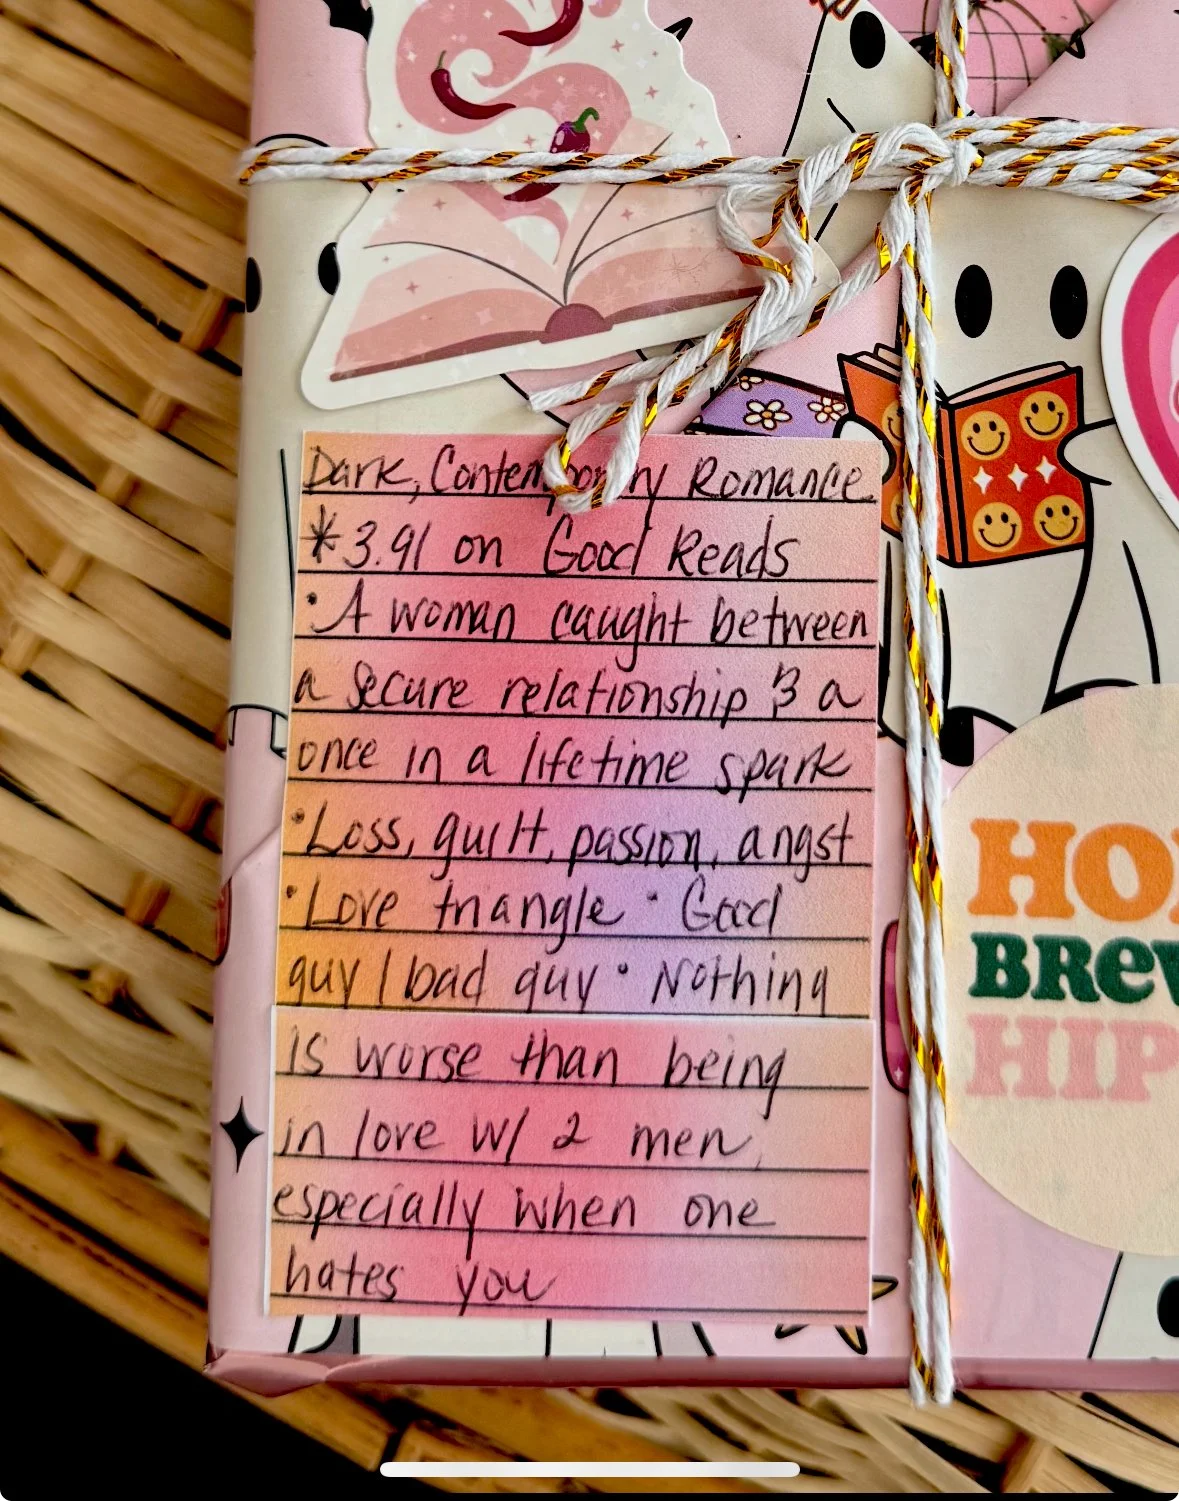 Dark, Contemporary Romance
*3.91 on Good Reads
• A woman caught between
a secure relationship & a
once in a lifetime spark
• Loss, guilt, passion, angst
• Love triangle • Good
guy / bad guy • Nothing
is worse than being
in love w/ 2 men,
especially when one
hates you
HO
BREW
HIP